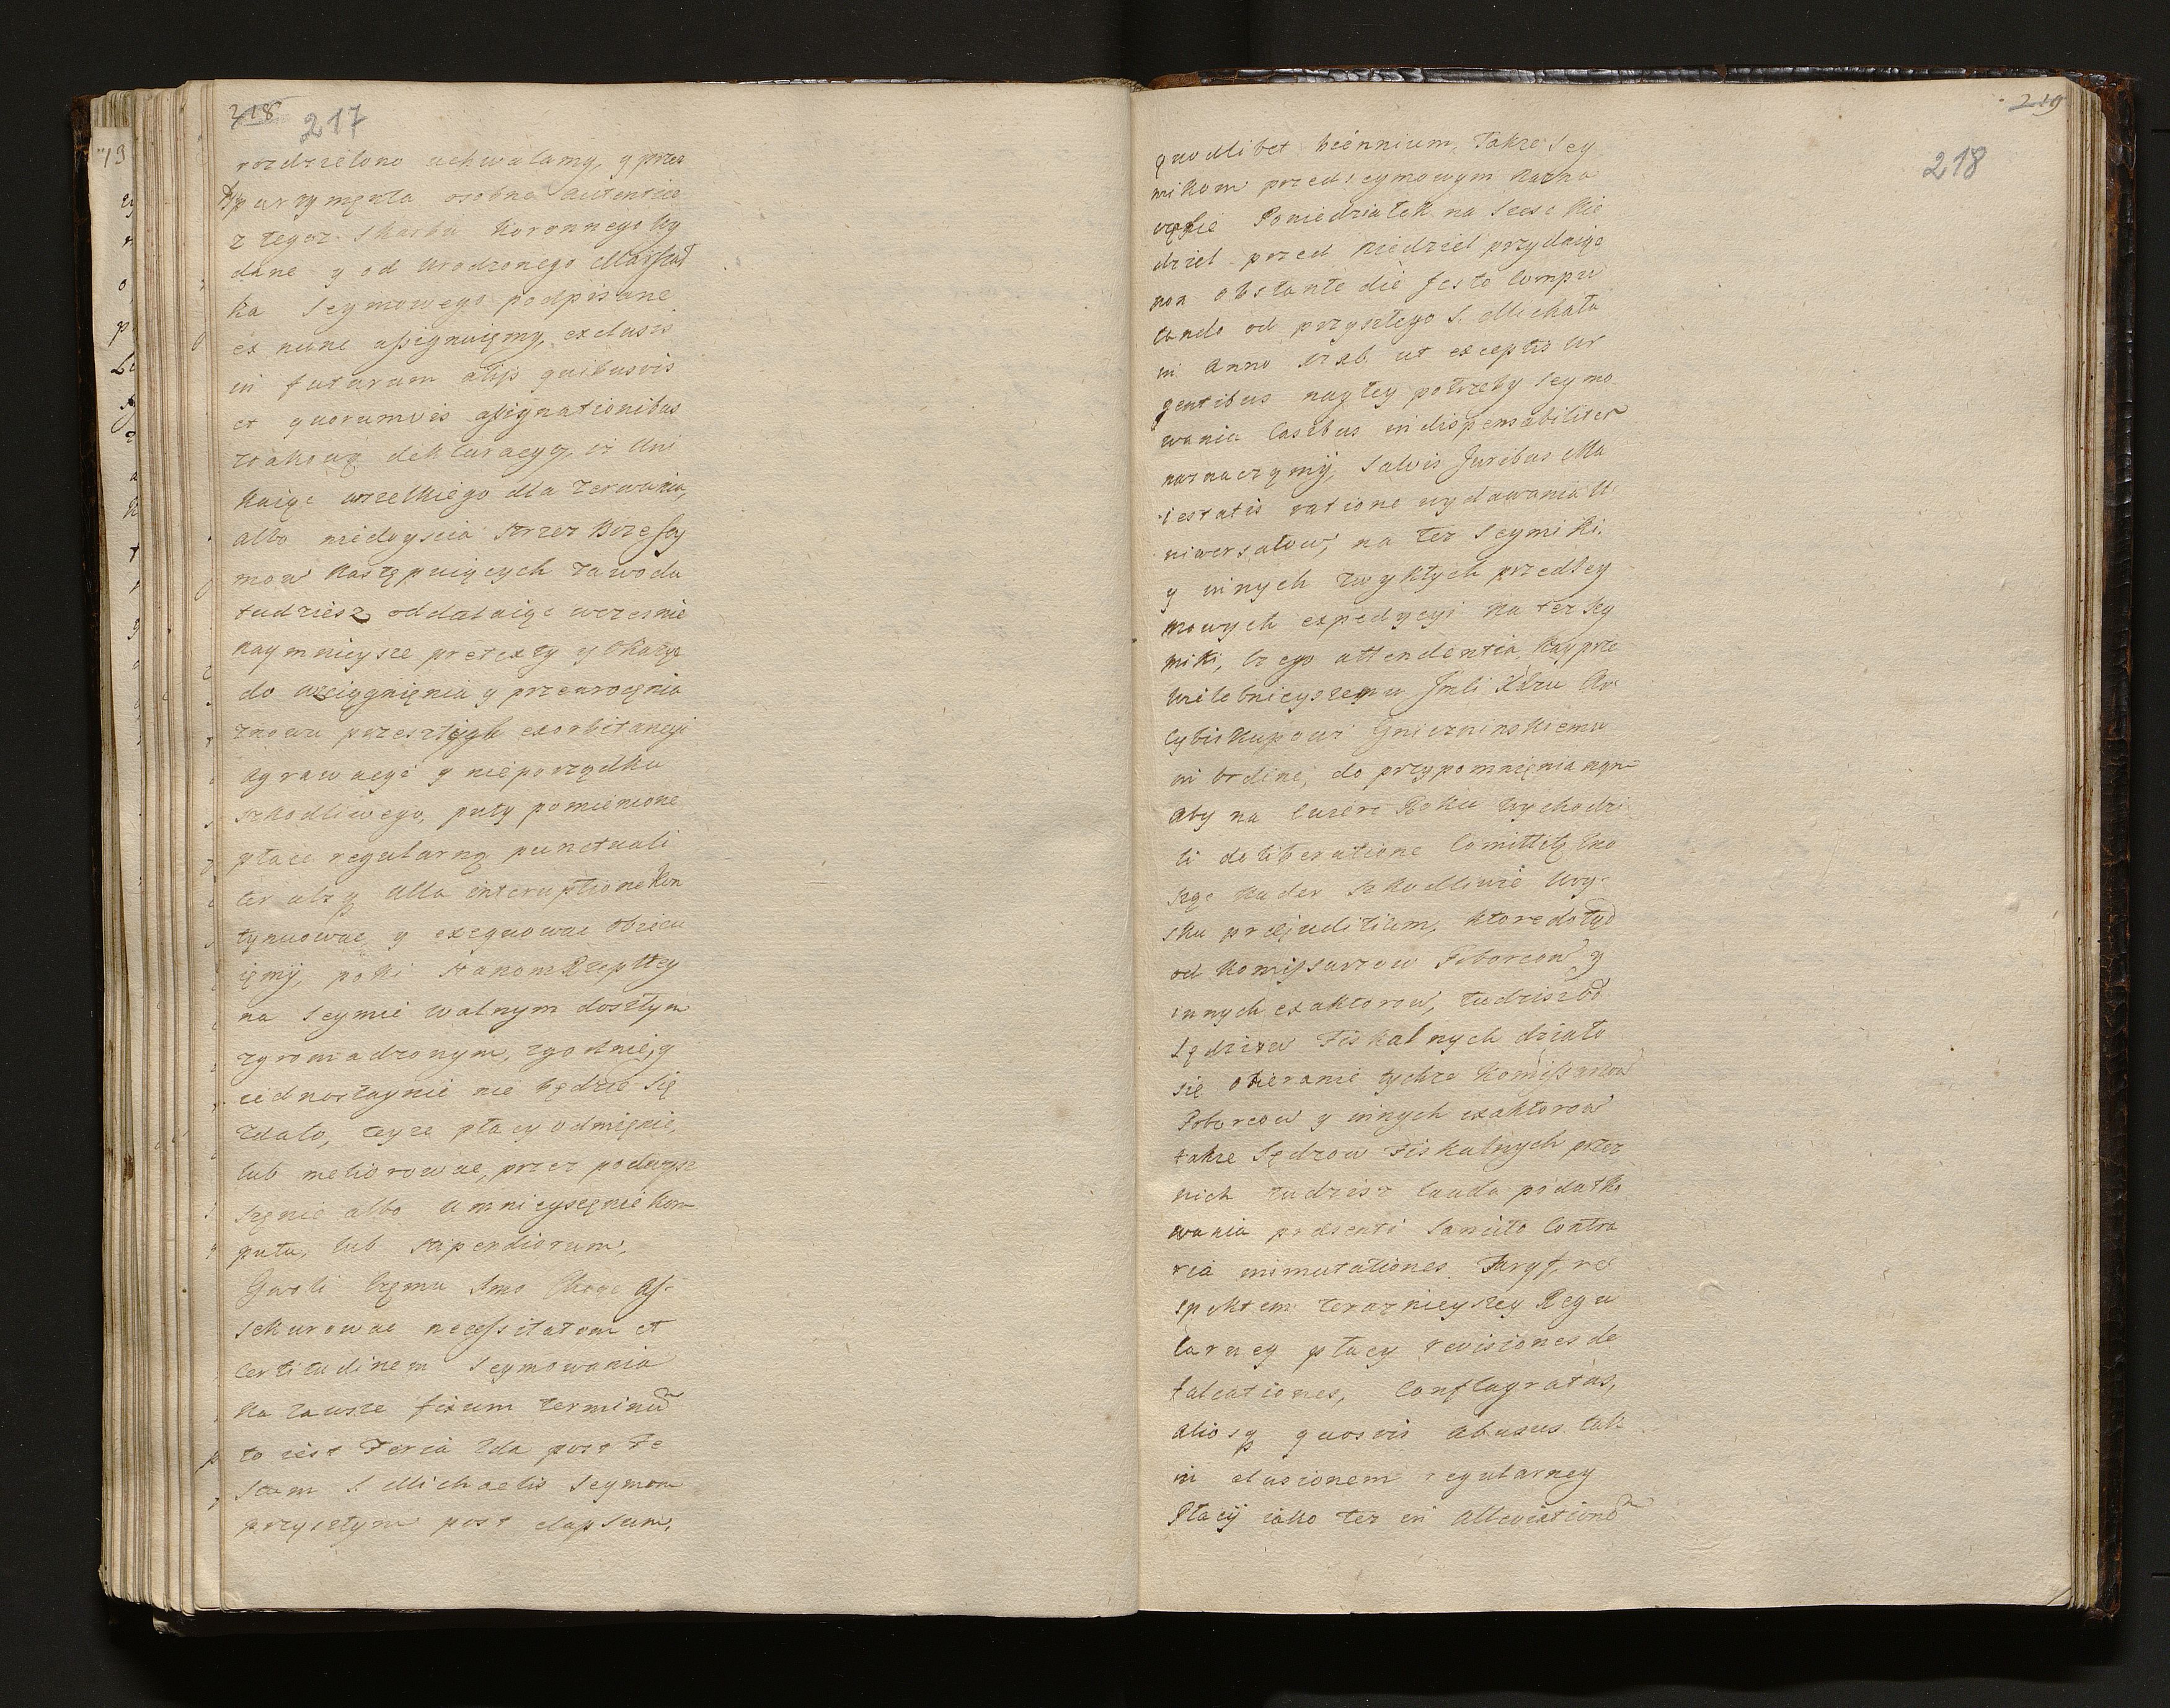 218 217
rozdzielono uchwalamy, y przez
dyspartymęnta osobne autentice
z tegoz Skarbu Koronnego wy
dane y od Urodzonego Marszał
ka Seymowego podpisane
ex nunc assignuięmy, exclusis
in futurum alijs quibusvis
et quorumvis assignationibus
z takową deklaracyą, iż uni
kaiąc wszelkiego dla zerwania,
albo niedoyścia strzez Boże Sey
mow następuiących zawodu
tudziesz oddalaiąc wczesnie
naymnieysze pretexty y okazye
do wsciągnięnia y przewrocęnia
znowu przeszłych exorbitancyi
agrawacyi y nieporządku
szkodliwego, puty pomienione
płace regularną punctuali
ter absq ulla interuptione kon
tynuować y exequować obiecu
ięmÿ, poki Stanom Rzeptey
na Seymie walnym doszłym
zgromadzonym, zgodnie, y
iednostaynie nie będzie się
zdało, teyze płacy odmięnic,
lub meliorować, przez podwysz
szęnie albo umnieyszęnie kom
putu, lub stipendiorum,
Gwoli częmu 1mo Chcąc as-
sekurować necessitatem et
Certitudinem Seymowania
na zawsze fixum terminū
to iest Feria 2da post Fe
stum S Michaelis Seymom
przyszłym post elapsum,
219
218
quodlibet biennium, Także Sey
mikom przedseymowym każna
Poniedziałek na szesc nie
dziel przed niedziel przydaiąc
non obstante die festo Compu
tando od przyszłego S. Michała
in Anno ut exceptis ur
gentibus nagłey potrzeby Seymo
wania Casibus indispensabiliter
naznaczymÿ, Salvis Juribus Ma
iestatis ratione wydawania U
niwersałow, na tez Seymiki.
y innych zwykłych przedsey
mowych expedycyi na tez Sey
miki, czego attendentia, nayprze
wielebnieyszemu Jmći Xdzu Ar
Cybiskupowi Gnieznińskiemu
in ordine, do przypomnięnia
aby na Czesne Roku wychodzi
li deliberatione Comittitę zno
sząc nader szkodliwie Woy-
sku præjuditium, ktore dotąd
od Komissarzow Poborcow y
innych exaktorow, tudzisz od
Sędziow Fiskalnych działo
się obieranie tychze Komissarzow
Poborcow y innych exaktorow
także Sędzow Fiskalnych przez
nich tudzisz lauda podatko
wania præsenti Sancito Contra
ria immutationes Taryf, re
spektem terazniejszey Regu
larney płacy revisiones de
falcationes, Conflagratas,
aliosq quosvis abusus tak
in elusionem regularney
Płacÿ iako tez in Alleviationē